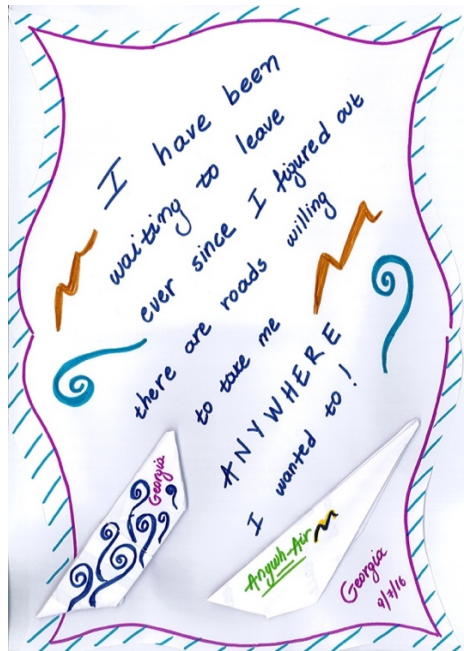 I have been
waiting to leave
ever since I figured out
there are roads willing
to take me
ANYWHERE
I wanted to!
Georgia
Anywh-Air
Georgia
9/7/16